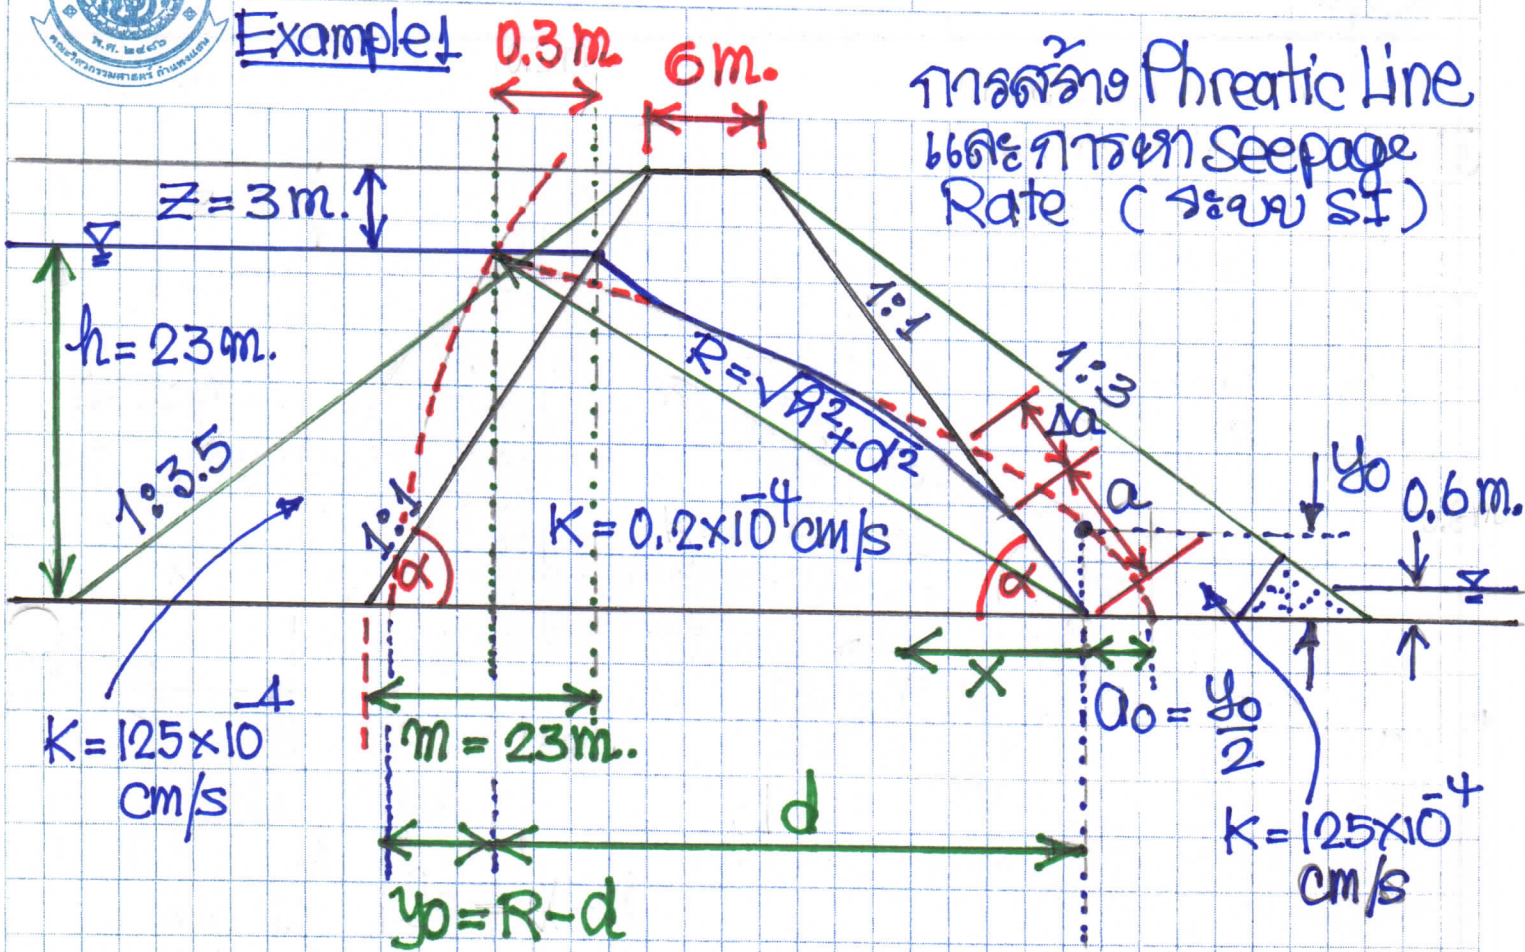 พ.ศ. ๒๔๘๖
คณะวิศวกรรมศาสตร์ กำแพงแสน
Example1
0.3 m.
6 m.
การสร้าง Phreatic Line
และการหา Seepage
Rate (ระบบ SI)
Z = 3 m.
h = 23 m.
1:3.5
1:1
α
K = 0.2×10⁻⁴ cm/s
R = √h²+d²
1:1
1:3
Δa
a
α
y0
0.6 m.
x
a0 = y0/2
K = 125×10⁻⁴
cm/s
m = 23 m.
d
K = 125×10⁻⁴
cm/s
y0 = R-d